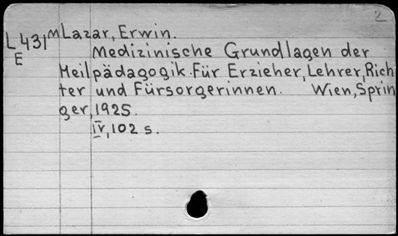 2
L431 M Lazar, Erwin.
E Medizinische Grundlagen der
Heilpädagogik. Für Erzieher, Lehrer, Rich
ter und Fürsorgerinnen. Wien, Sprin
ger, 1925.
IV, 102 s.